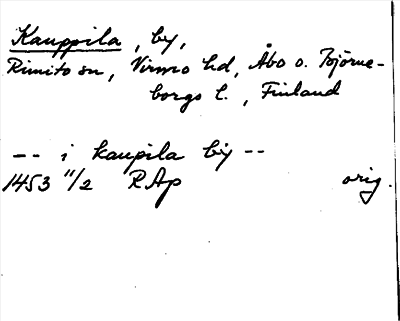 Kauppila, by,
Rimito sn, Virmo hd, Åbo o. Björne-
borgs l., Finland
-- i kaupila by --
1453 11/2 RAp orig.